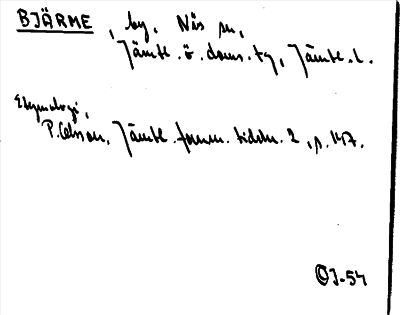 BJÄRME, by, Näs sn,
Jämtl. ö. doms. tg, Jämtl. l.
Etymologi,
P. Olsson, Jämtl. fornm. tidskr. 2, s. 147.
OJ-54